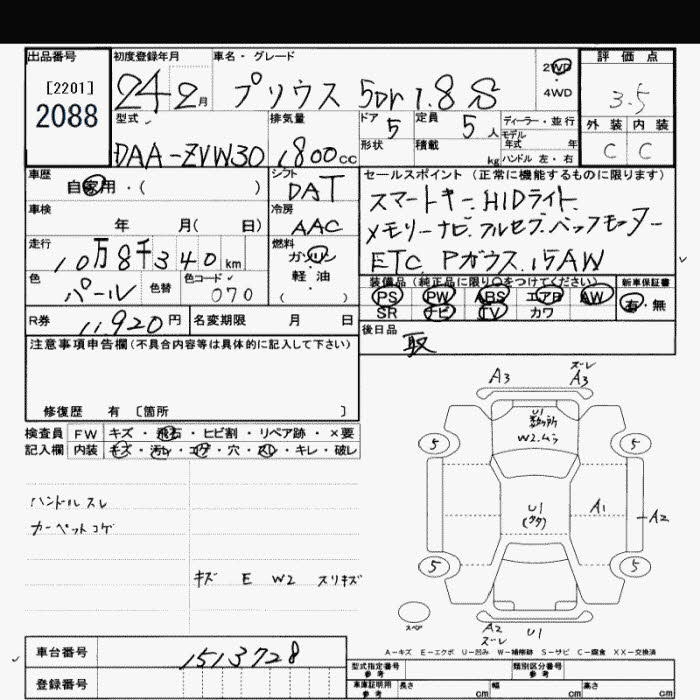 出品番号 初度登録年月 車名・グレード 評価点
[2201]
2088
24 2月 プリウス 5Dr 1.8 S
2WD
4WD
3.5
型式 排気量 ドア 5 定員 5人 ディーラー・並行
モデル年式 年
外装 内装
DAA-ZVW30 1800cc
形状 積載 kg ハンドル 左・右
C C
車歴 自家用・( ) シフト DAT
セールスポイント (正常に機能するものに限ります)
スマートキー.HIDライト.
車検 年 月( 日) 冷房 AAC
メモリーナビ.フルセグ.バックモーター
走行 10万8千340km
燃料 ガソリン 軽・油 ( )
ETC Pガラス 15AW
色 パール 色替 色コード 070
装備品 (純正品に限り○をつけてください) 新車保証書
PS PW ABS エアB AW 有・無
SR ナビ TV カワ
R券 11,920円 名変期限 月 日
後日品 取
注意事項申告欄(不具合内容等は具体的に記入して下さい)
修復歴 有 〔箇所 〕
検査員 FW キズ・飛石・ヒビ割・リペア跡・×要
記入欄 内装 キズ・汚レ・コゲ・穴・スレ・キレ・破レ
ハンドルスレ
カーペットコゲ
キズ E W2 スリキズ
A3 ズレ A3
U1
W2.ムラ
5 5
U1
A1 A2
5 5
スペア
A2 ズレ U1
A-キズ E-エクボ U-凹み W-補修跡 S-サビ C-腐食 XX-交換済
車台番号 1513728
登録番号
型式指定番号 参考 類別区分番号 参考
車庫証明用 参考 長さ cm 幅 cm 高さ cm